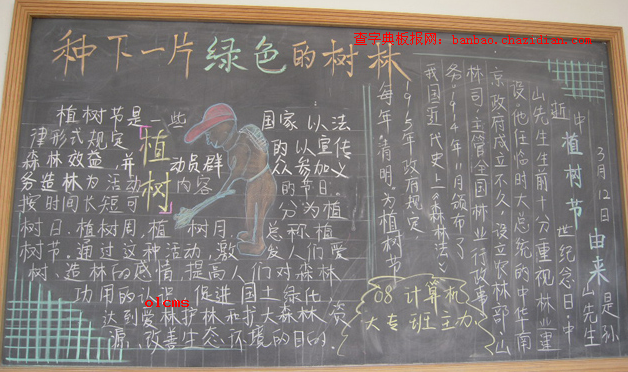 查字典板报网: banbao.chazidian.com
种下一片绿色的树林
植树节是一些国家以法
律形式规定的以宣传
森林效益、并动员群众参加义
务造林为活动内容的节日。
按时间长短可分为植
树日、植树周、植树月。总称植
树节。通过这种活动,激发人们爱
树、造林的感情,提高人们对森林
功用的认识,促进国土绿化
达到爱林护林和扩大森林资
源、改善生态环境的目的。
植树
olcms
中植树节由来
3月12日是孙
中山先生
逝世纪念日。
山先生生前十分重视林业建
设。他任临时大总统的中华南
京政府成立不久,设立农林部、山
林司,主管全国林业行政事
务。1914年11月颁布了
我国近代史上《森林法》
1915年政府规定
每年"清明"为植树节
08计算机
大专班主办